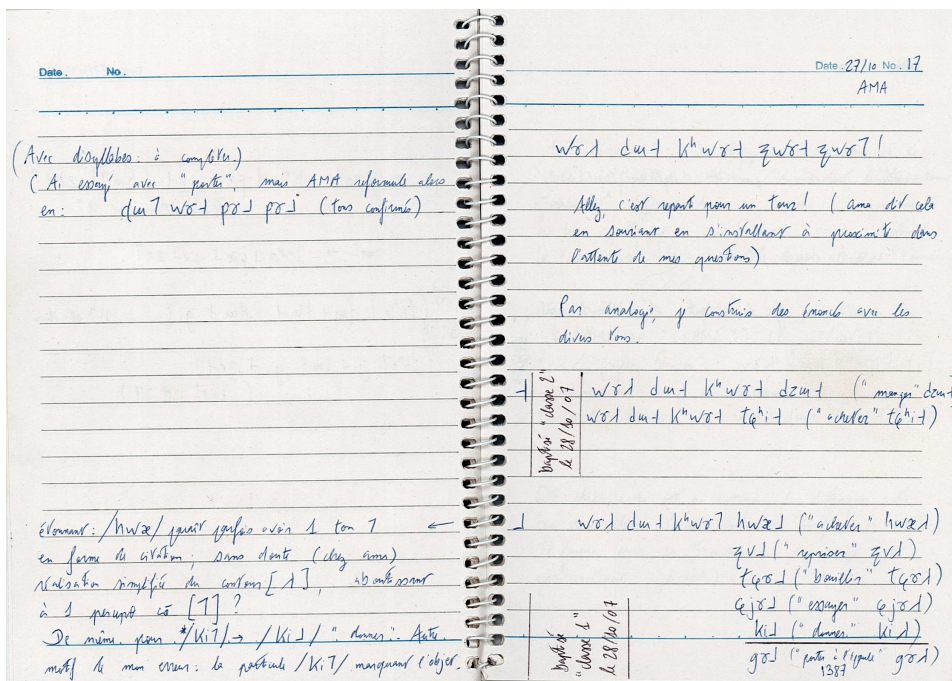 Date. No.
(Avec disyllabes: à compléter.)
(Ai essayé avec "porter", mais AMA reformule alors
en: dɯ˥ wɤ˧ pɤ˩ pɤ˩ (tons confirmés)
étonnant: /hwæ/ paraît parfois avoir 1 ton ˥ ←
en forme de citation; sans doute (chez ama)
réalisation simplifiée du contour [˩˥], aboutissant
à 1 percept co [˥] ?
De même pour */ki˥/ → /ki˩/ "donner". Autre
motif de mon erreur: la particule /ki˥/ marquant l'objet.
Date 27/10 No. 17
AMA
wɤ˩˥ dɯ˧ kʰwɤ˧ ʐwɤ˧ ʐwɤ˥!
Allez, c'est reparti pour un tour! (ama dit cela
en souriant en s'installant à proximité dans
l'attente de mes questions)
Par analogie, je construis des énoncés avec les
divers tons.
˧ wɤ˩˥ dɯ˧ kʰwɤ˧ dzɯ˧ ("manger" dzɯ˧)
wɤ˩˥ dɯ˧ kʰwɤ˧ tɕʰi˧ ("acheter" tɕʰi˧)
baptisé "classe 2"
le 28/10/07
˩ wɤ˩˥ dɯ˧ kʰwɤ˥ hwæ˩ ("acheter" hwæ˩˥)
ʐv˩ ("repriser" ʐv˩˥)
tɕɤ˩ ("bouillir" tɕɤ˩˥)
ɕjɤ˩ ("essayer" ɕjɤ˩˥)
ki˩ ("donner" ki˩˥)
gɤ˩ ("porter à l'épaule" gɤ˩˥)
1387
baptisé
"classe 1"
le 28/10/07